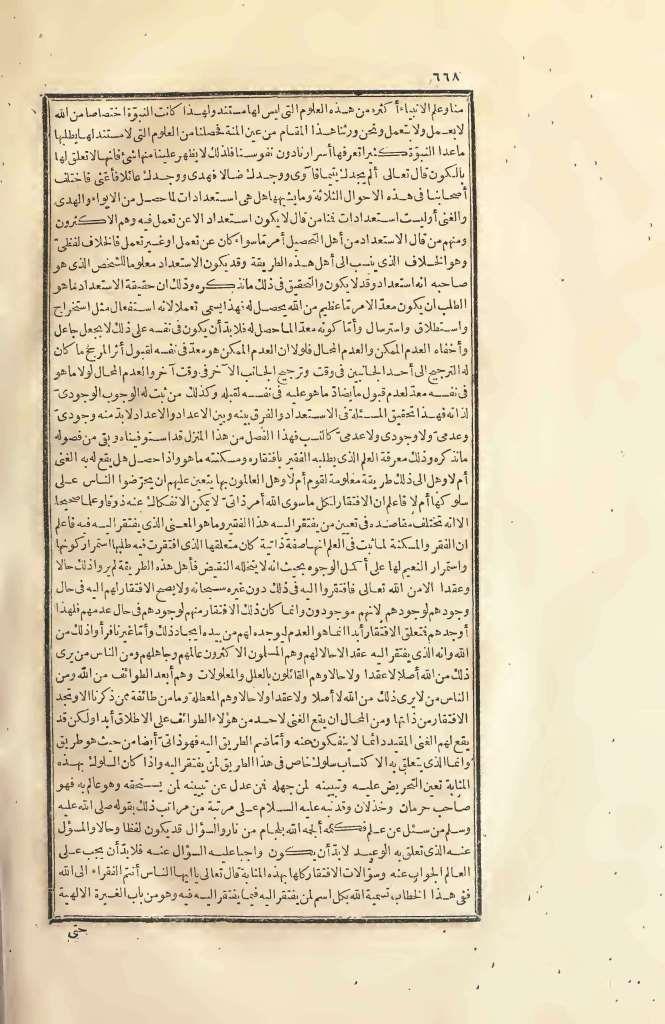 ٦٦٨
منا وعلم الانبياء أكثره من هذه العلوم التى ليس لها مستند ولهذا كانت النبوّة اختصاصا من الله
لا بعمل ولا تعمل ونحن ورثنا هذا المقام من عين المنة فحصلنا من العلوم التى لا مستند لها يطلبها
ماعدا النبوّة كثيرا تعرفها أسرارنا دون نفوسنا فلذلك لا يظهر علينا منها شئ فانها لا تعلق لها
بالكون قال تعالى ألم يجدك يتيما فآوى ووجدك ضالا فهدى ووجدك عائلا فأغنى فاختلف
أصحابنا فى هذه الاحوال الثلاثة وما يشبهها هل هى استعدادات لما حصل من الايواء والهدى
والغنى أوليست استعدادات فمنا من قال لا يكون استعداد الا عن تعمل فيه وهم الاكثرون
ومنهم من قال الاستعداد من أهل التحصيل أمر ما سواء كان عن تعمل أو غير تعمل فالخلاف لفظىّ
وهو الخلاف الذى ينسب الى أهل هذه الطريقة وقد يكون الاستعداد معلوما للشخص الذى هو
صاحبه انه استعداد وقد لا يكون والتحقيق فى ذلك مانذكره وذلك ان حقيقة الاستعداد ما هو
الطلب ان يكون معدّا لامر مّا عظيم من الله يحصل له فهذا يسمى تعملا لانه استفعال مثل استخراج
واستطلاق واسترسال وأمّا كونه معدّا لما حصل له فلا بدّ أن يكون فى نفسه على ذلك لا يجعل جاعل
وأخفاه العدم الممكن والعدم المحال فلولا ان العدم الممكن هو معدّ فى نفسه لقبول أثر المرجح ما كان
له الترجيح الى أحد الجانبين فى وقت وترجيح الجانب الآخر فى وقت آخر والعدم المحال لولا ما هو
فى نفسه معدّ لعدم قبول ما يضادّ ما هو عليه فى نفسه لقبله وكذلك من ثبت له الوجوب الوجودىّ
لذاته فهذا تحقيق المسئلة فى الاستعداد والفرق بينه وبين الاعداد والاعداد لابدّ منه وجودىّ
وعدمىّ ولا وجودى ولا عدمىّ كالنسب فهذا الفصل من هذا المنزل قد استوفيناه وبقى من فصوله
مانذكره وذلك معرفة العلم الذى يطلبه الفقير بافتقاره ومسكنته ما هو واذا حصل هل يقع له به الغنى
أم لا وهل الى ذلك طريقة معلومة لقوم أم لا وهل العالمون بها يتعين عليهم ان يحرّضوا الناس على
سلوكها أم لا فاعلم ان الافتقار لكل ماسوى الله أمر ذاتىّ لا يمكن الانفكاك عنه ذوقا وعلما صحيحا
الا انه تختلف مقاصده فى تعيين من يفتقر اليه هذا الفقير وما هو المعنى الذى يفتقر اليه فيه فاعلم
ان الفقر والمسكنة لما ثبت فى العلم انها صفة ذاتية كان متعلقها الذى افتقرت فيه طلبها استمرار كونها
واستمرار النعيم لها على أكمل الوجوه بحيث انه لا يتخلله النقيض فأهل هذه الطريقة لم يروا ذلك حالا
وعقدا الا من الله تعالى فافتقروا اليه فى ذلك دون غيره سبحانه ولا يصح الافتقار لهم اليه فى حال
وجودهم لوجودهم لانهم موجودون وانما كان ذلك الافتقار منهم لوجودهم فى حال عدمهم فلهذا
أوجدهم فتعلق الافتقار أبدا انما هو العدم ليوجده لهم من بيده ايجاد ذلك وأمّا غيرنا فرأوا ذلك من
الله وانه الذى يفتقر اليه عقدا لا حالا لهم وهم المسلمون الاكثرون عالمهم وجاهلهم ومن الناس من يرى
ذلك من الله أصلا لا عقدا ولا حالا وهم القائلون بالعلل والمعلولات وهم أبعد الطوائف من الله ومن
الناس من لا يرى ذلك من الله لا أصلا ولا عقدا ولا حالا وهم المعطلة وما من طائفة ممن ذكرنا الا وتجد
الافتقار من ذاتها ومن المحال ان يقع الغنى لاحد من هؤلاء الطوائف على الاطلاق أبدا ولكن قد
يقع لهم الغنى المقيد دائما لا ينفكون عنه وأمّا ضم الطريق اليه فهو ذاتىّ أيضا من حيث هو طريق
وانما الذى يتعلق به الاكتساب سلوك خاص فى هذا الطريق لمن يفتقر اليه واذا كان السلوك بهذه
المثابة تعين التحريض عليه وتبيينه لمن جهله فمن عدل عن تبيينه لمن يستحقه وهو عالم به فهو
صاحب حرمان وخذلان وقد نبه عليه السلام على مرتبة من مراتب ذلك بقوله صلى الله عليه
وسلم من سئل عن علم فكتمه ألجمه الله بلجام من نار والسؤال قد يكون لفظا وحالا والمسؤل
عنه الذى تعلق به الوعيد لا بدّ أن يكون واجبا عليه السؤال عنه فلا بدّ أن يجب على
العالم الجواب عنه وسؤالات الافتقار كلها بهذه المثابة قال تعالى يا ايها الناس أنتم الفقراء الى الله
ففى هذا الخطاب تسمية الله بكل اسم لمن يفتقر اليه فيما يفتقر اليه فيه وهو من باب الغيرة الالهية
حتى